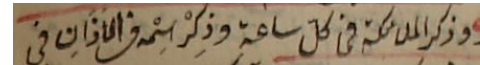 وذكر الملائكة فى كل ساعة وذِكْر اِسْمه فى الاَذَانِ فى